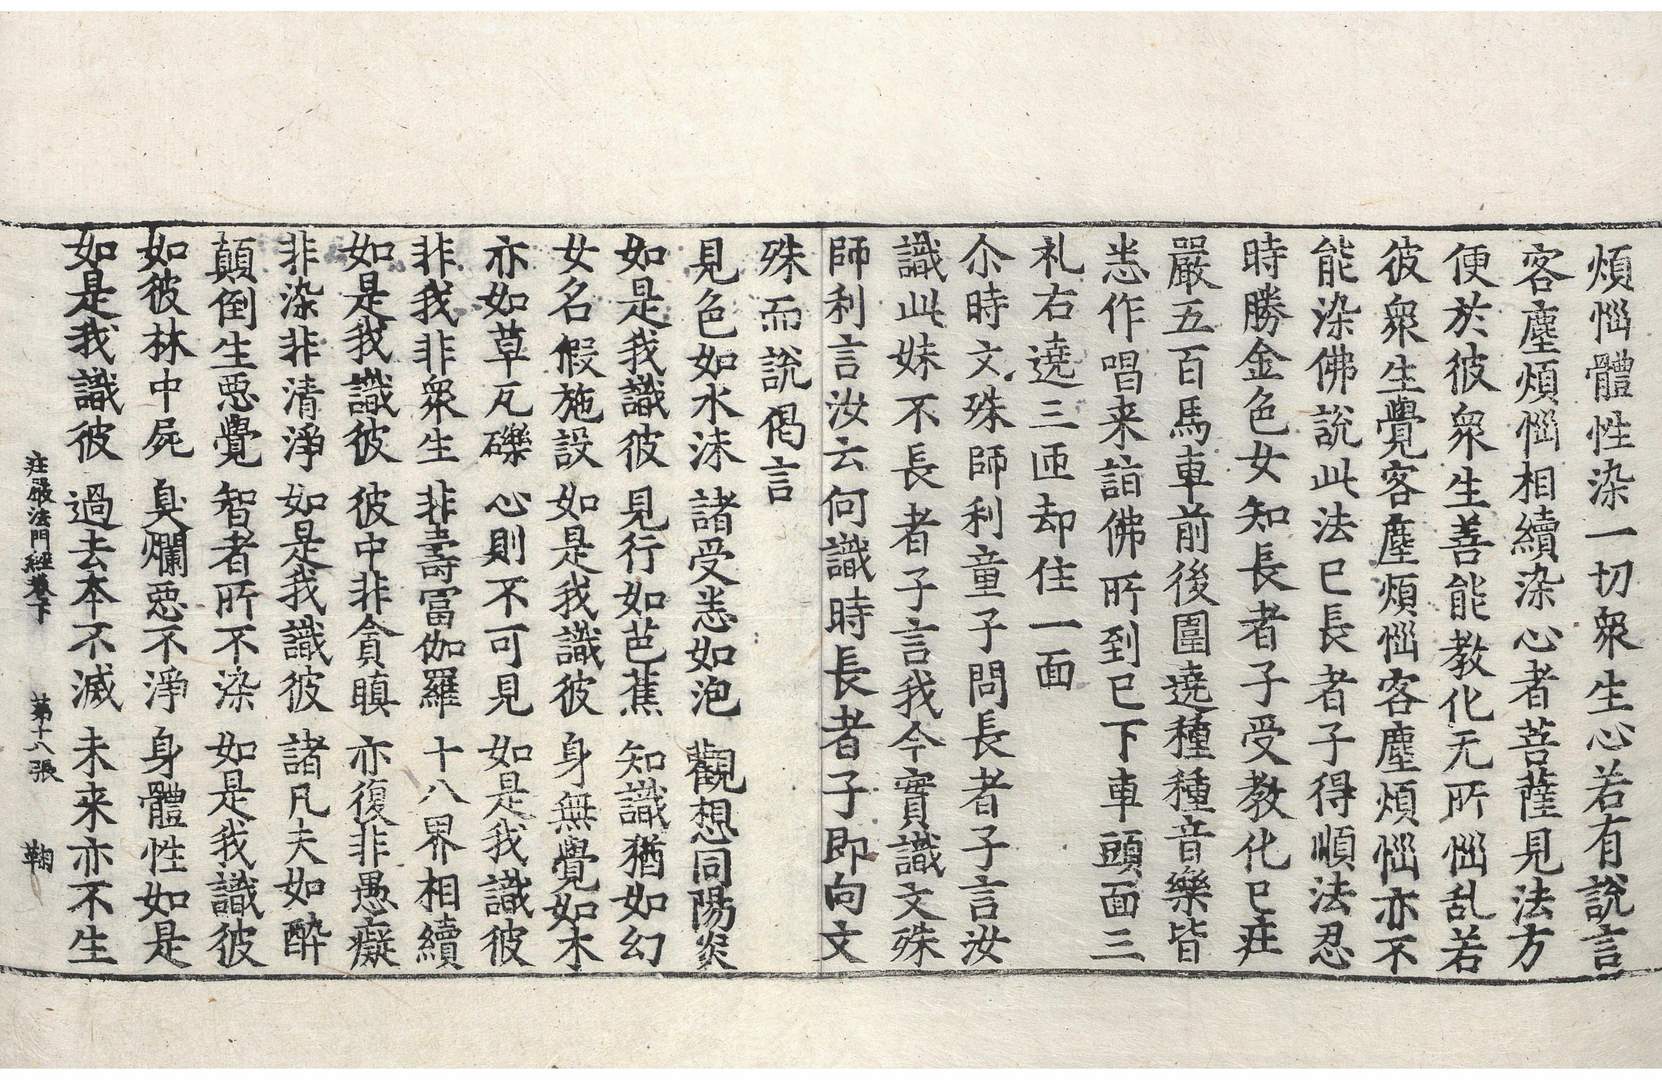 煩惱體性染一切衆生心若有說言
客塵煩惱相續染心者菩薩見法方
便於彼衆生善能教化无所惱乱若
彼衆生覺客塵煩惱客塵煩惱亦不
能染佛說此法已長者子得順法忍
時勝金色女知長者子受教化已莊
嚴五百馬車前後圍遶種種音樂皆
悉作唱来詣佛所到已下車頭面三
礼右遶三匝却住一面
尒時文殊師利童子問長者子言汝
識此妹不長者子言我今實識文殊
師利言汝云何識時長者子即向文
殊而說偈言
見色如水沫 諸受悉如泡 觀想同陽炎
如是我識彼 見行如芭蕉 知識猶如幻
女名假施設 如是我識彼 身無覺如木
亦如草瓦礫 心則不可見 如是我識彼
非我非衆生 非壽冨伽羅 十八界相續
如是我識彼 彼中非貪瞋 亦復非愚癡
非染非清淨 如是我識彼 諸凡夫如醉
顛倒生惡覺 智者所不染 如是我識彼
如彼林中屍 臭爛惡不淨 身體性如是
如是我識彼 過去本不滅 未来亦不生
莊嚴法門經卷下 第十八張 鞠